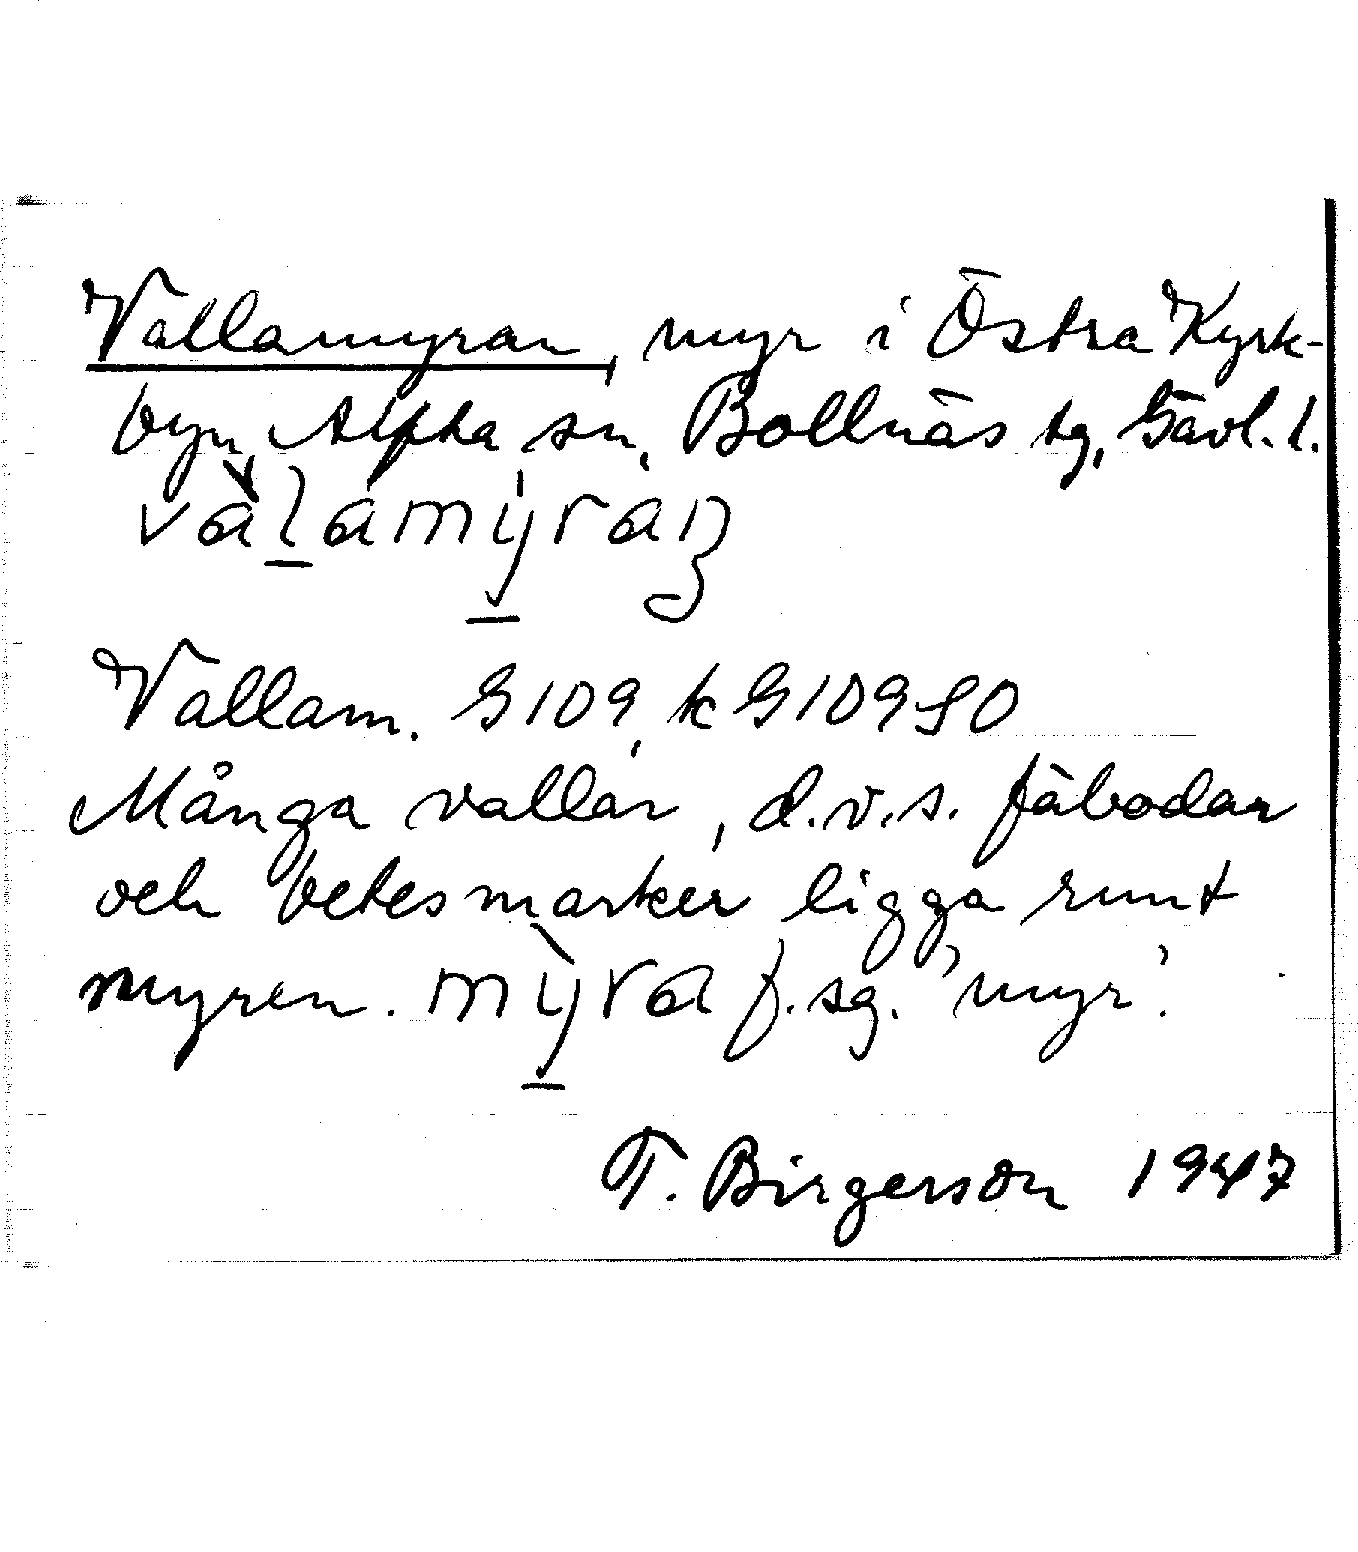 Vallamyran, myr i Östra Kyrk-
byn, Alfta sn, Bollnäs tg, Gävl. l.
Vallam. G109, k G109SO
Många vallar, d.v.s. fäbodar
och betesmarker ligga runt
myren. myra f. sg. 'myr'.
T. Birgerson 1947